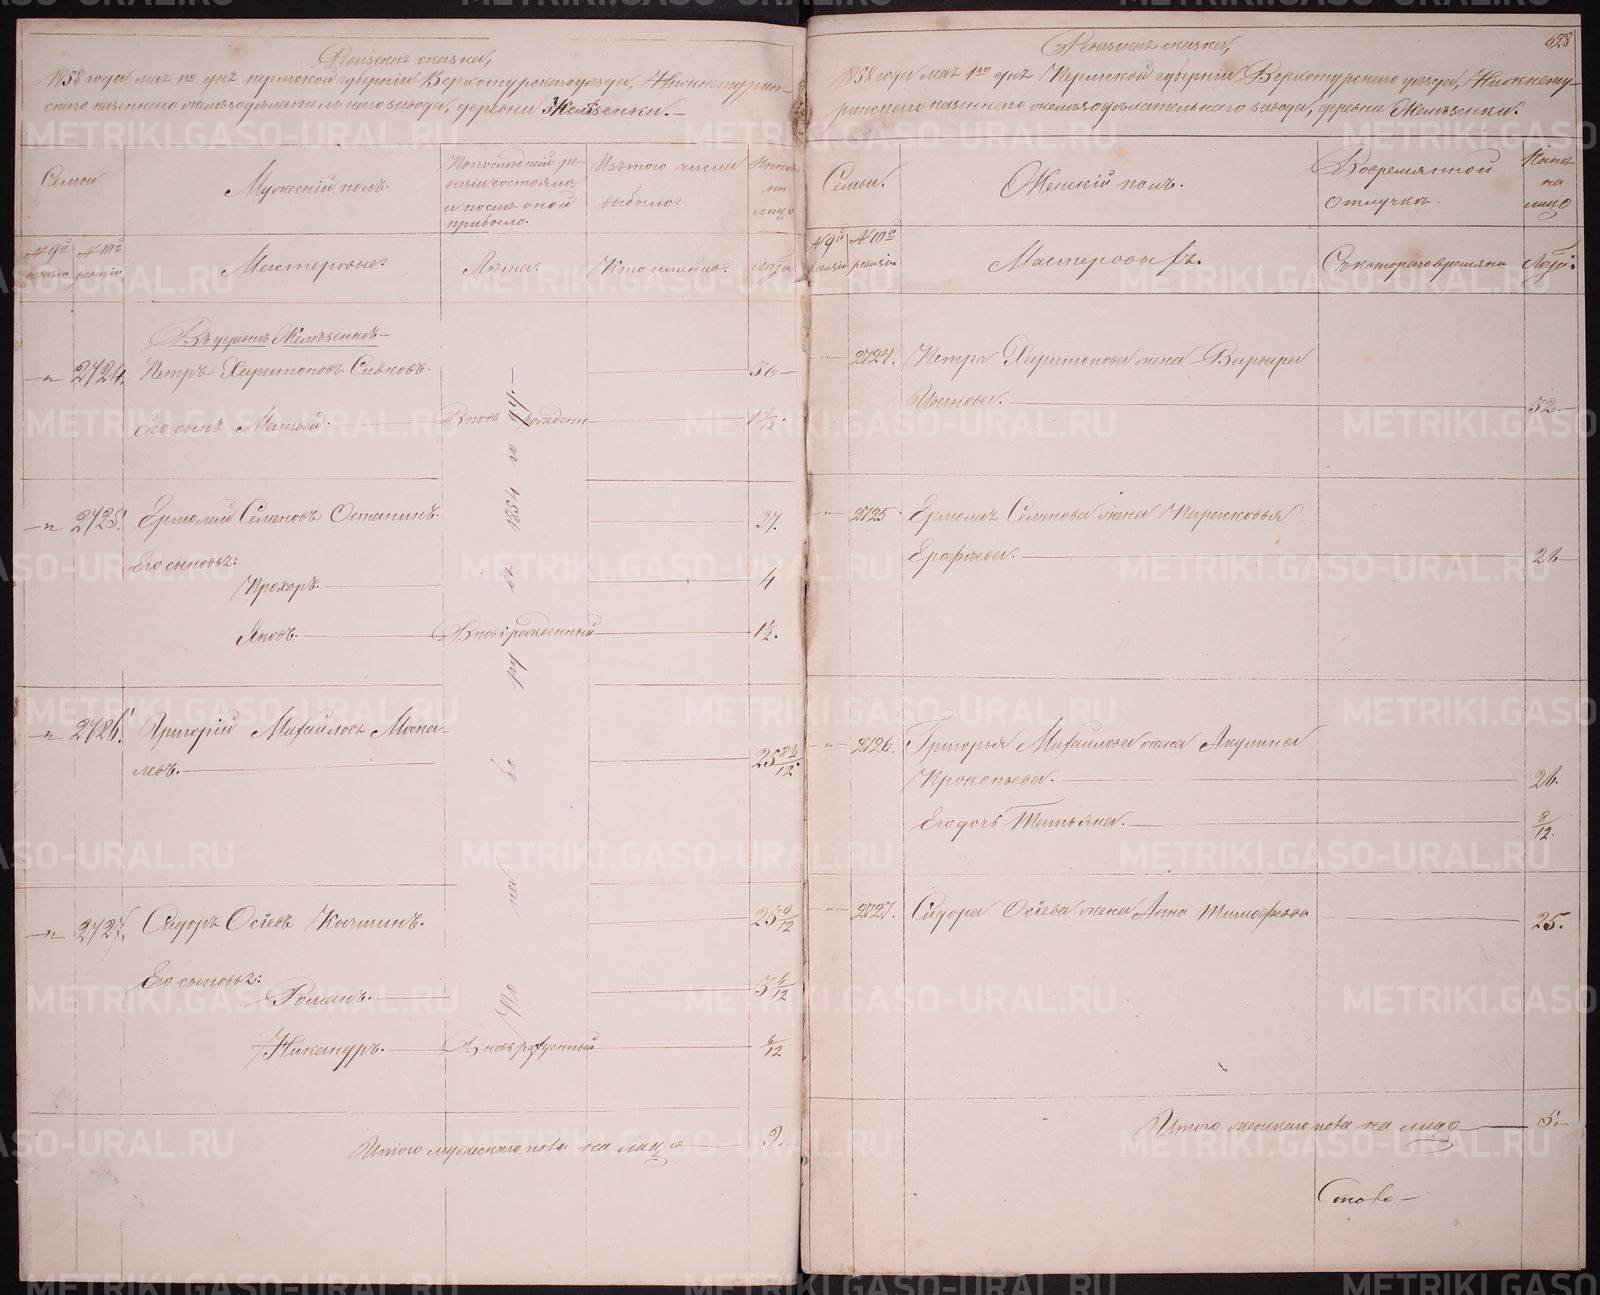 Ревизская сказка,
1858 года мая 1го дня Пермской губернiи Верхотурскаго уезда, Нижнетурин-
скаго казеннаго железоделательнаго завода, деревни Железенки.-
Семьи.
Мужескiй полъ.
По последней ре-
визiи состояло
и после оной
прибыло.
Изъ того числа
выбыло.
Ныне
на
лицо
№ 9й ревизiи
№ 10й ревизiи
Мастеровые.
Лета.
Кто именно.
Лета.
Въ деревне Железенке.-
-"- 2724. Петръ Харитоновъ Сивковъ. 56-
Его сынъ Матвей. Вновь рожден-
-"- 2725. Ермолай Семеновъ Останинъ. 27.
Его сыновья:
Прохоръ. 4
Яковъ. Вновь рожденный 1½.
-"- 2726. Григорiй Михайловъ Моска-
левъ. 25 8½/12
-"- 2727. Сидоръ Осiевъ Качтинъ.
Его сыновья:
Романъ.
Никандръ. Вновь рожденный
Итого мужескаго пола на лицо 9.-
628
Ревизская сказка,
1858 года мая 1го дня Пермской губернiи Верхотурскаго уезда, Нижнету-
ринскаго казеннаго железоделательнаго завода, деревни Железенки.
Семьи.
Женскiй полъ.
Во временной
отлучке.
Ныне
на
лицо
№ 9й ревизiи
№ 10й ревизiи
Мастеровыхъ.
Съ котораго времени
Лета.
-"- 2724. Петра Харитонова жена Варвара
Иванова. 52-
-"- 2725 Ермолая Семенова жена Парасковья
Ерофеева. 26-
-"- 2726. Григорья Михайлова жена Акулина
Прокопьева. 26.
Его дочь Татьяна. 8/12.
-"- 2727. Сидора Осiева жена Анна Тимофеева 25.
Итого женскаго пола на лицо 5.-